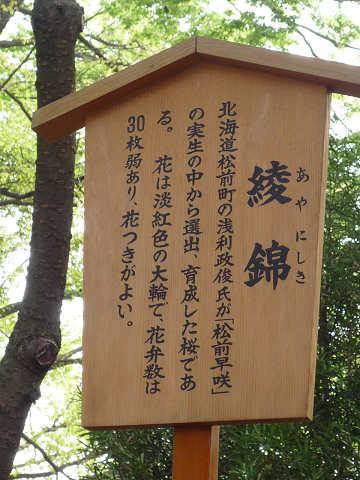 あやにしき
綾錦
北海道松前町の浅利政俊氏が「松前早咲」
の実生の中から選出、育成した桜であ
る。 花は淡紅色の大輪で、花弁数は
30枚弱あり、花つきがよい。